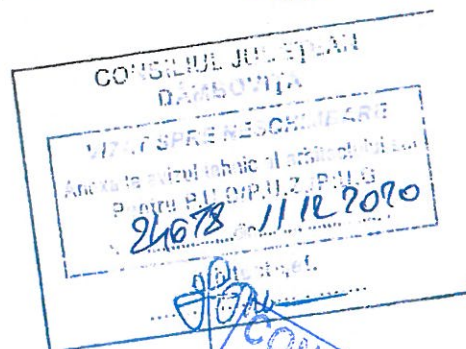 CONSILIUL JUDEȚEAN
DÂMBOVIȚA
VIZAT SPRE NESCHIMBARE
Anexă la avizul tehnic al arhitectului șef
Pentru P.U.D/P.U.Z./P.U.G
24678 din 11 12 2020
CON